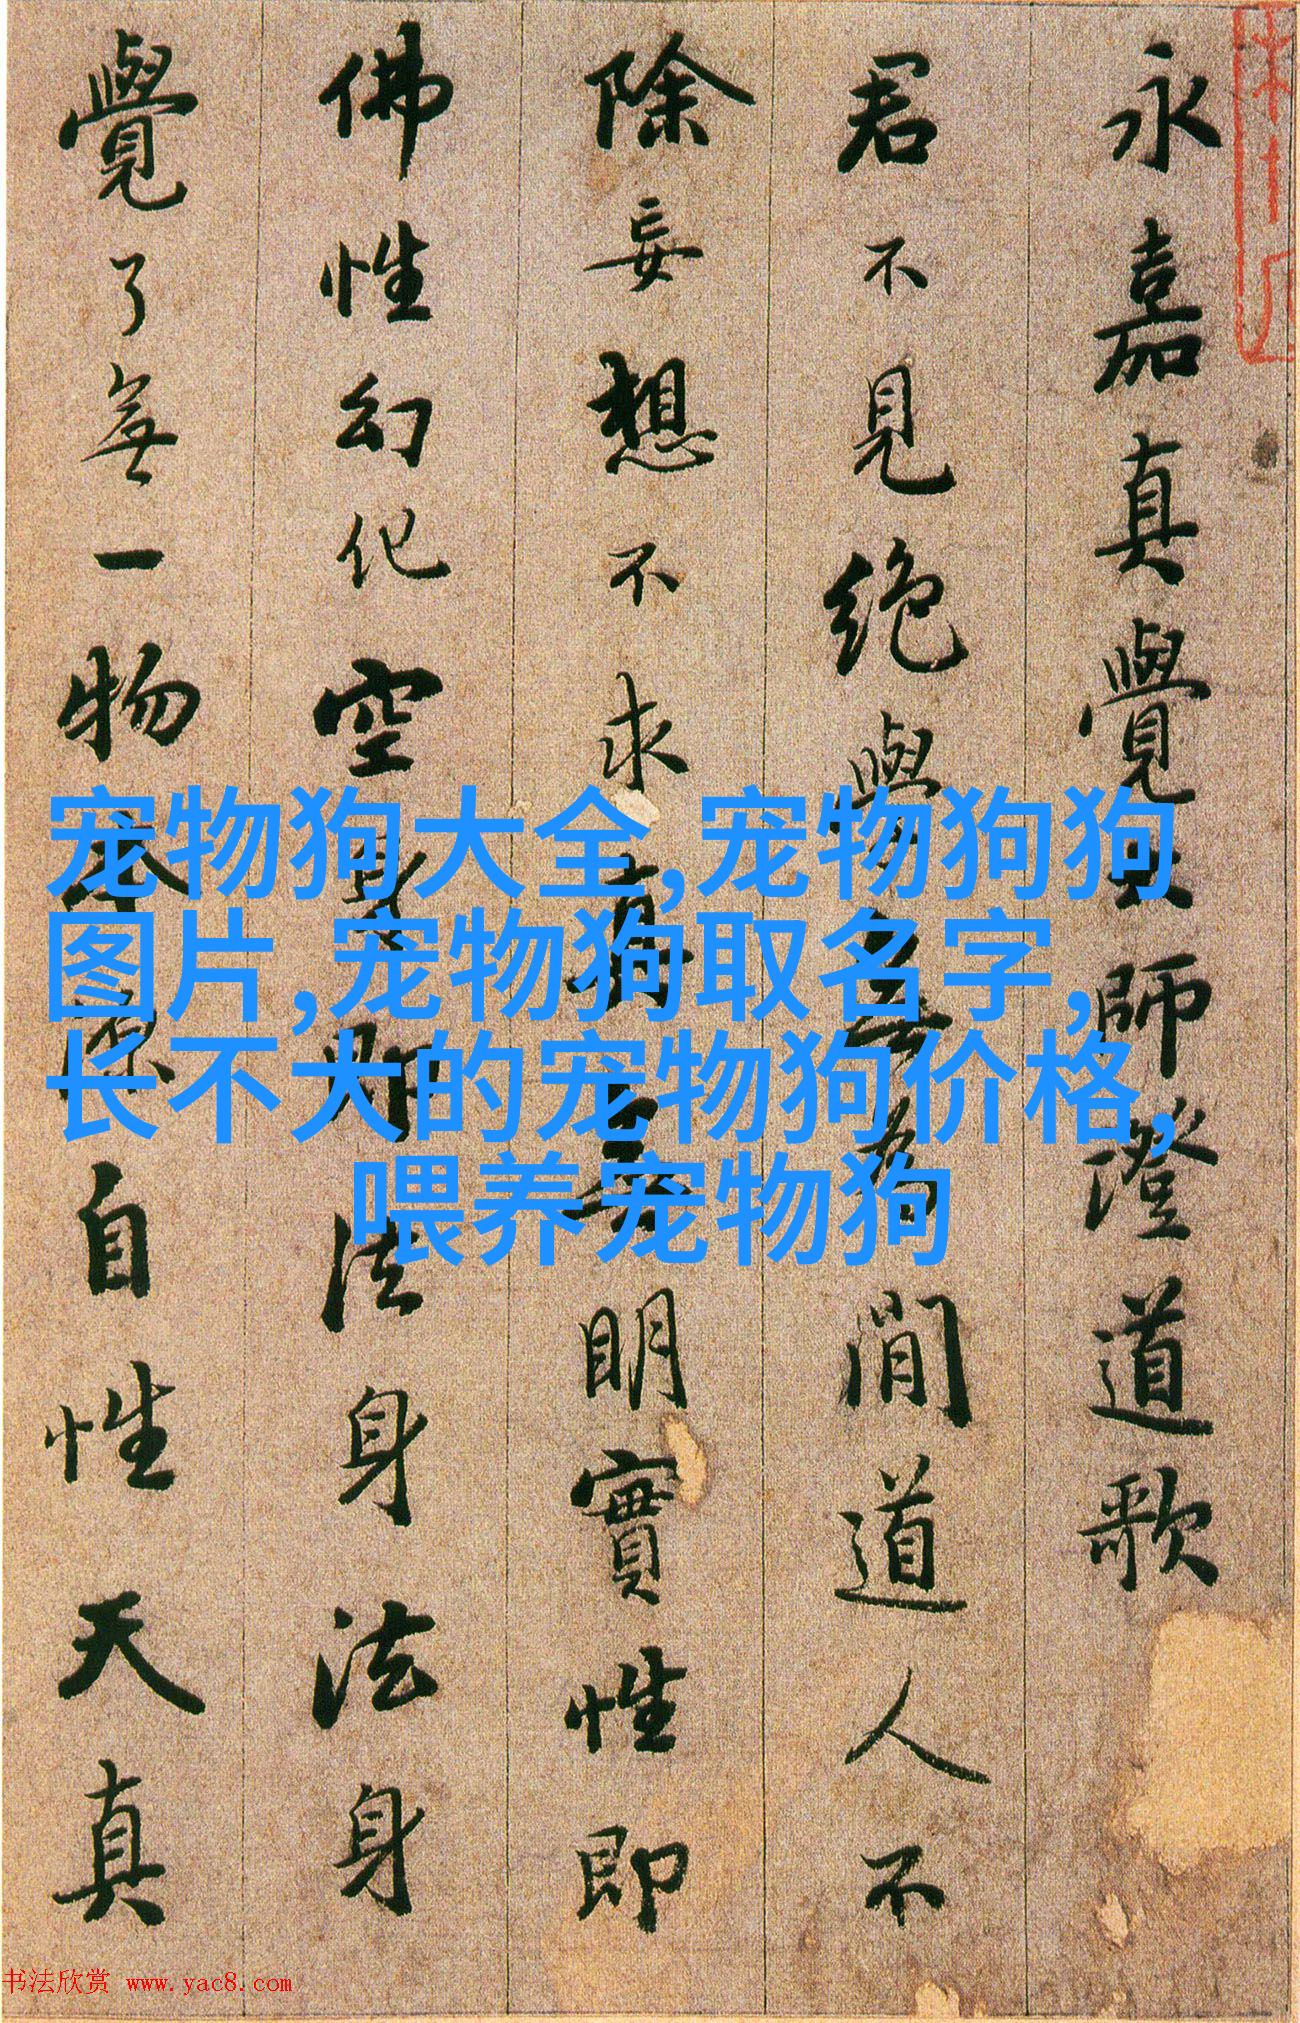 永嘉真覺大師澄道歌
君不見絶學無為閒道人不
除妄想不求真無明實性即
佛性幻化空身即法身法身
覺了無一物本源自性天真
宠物狗大全,宠物狗狗
图片,宠物狗取名字,
长不大的宠物狗价格,
喂养宠物狗
书法欣赏 www.yac8.com